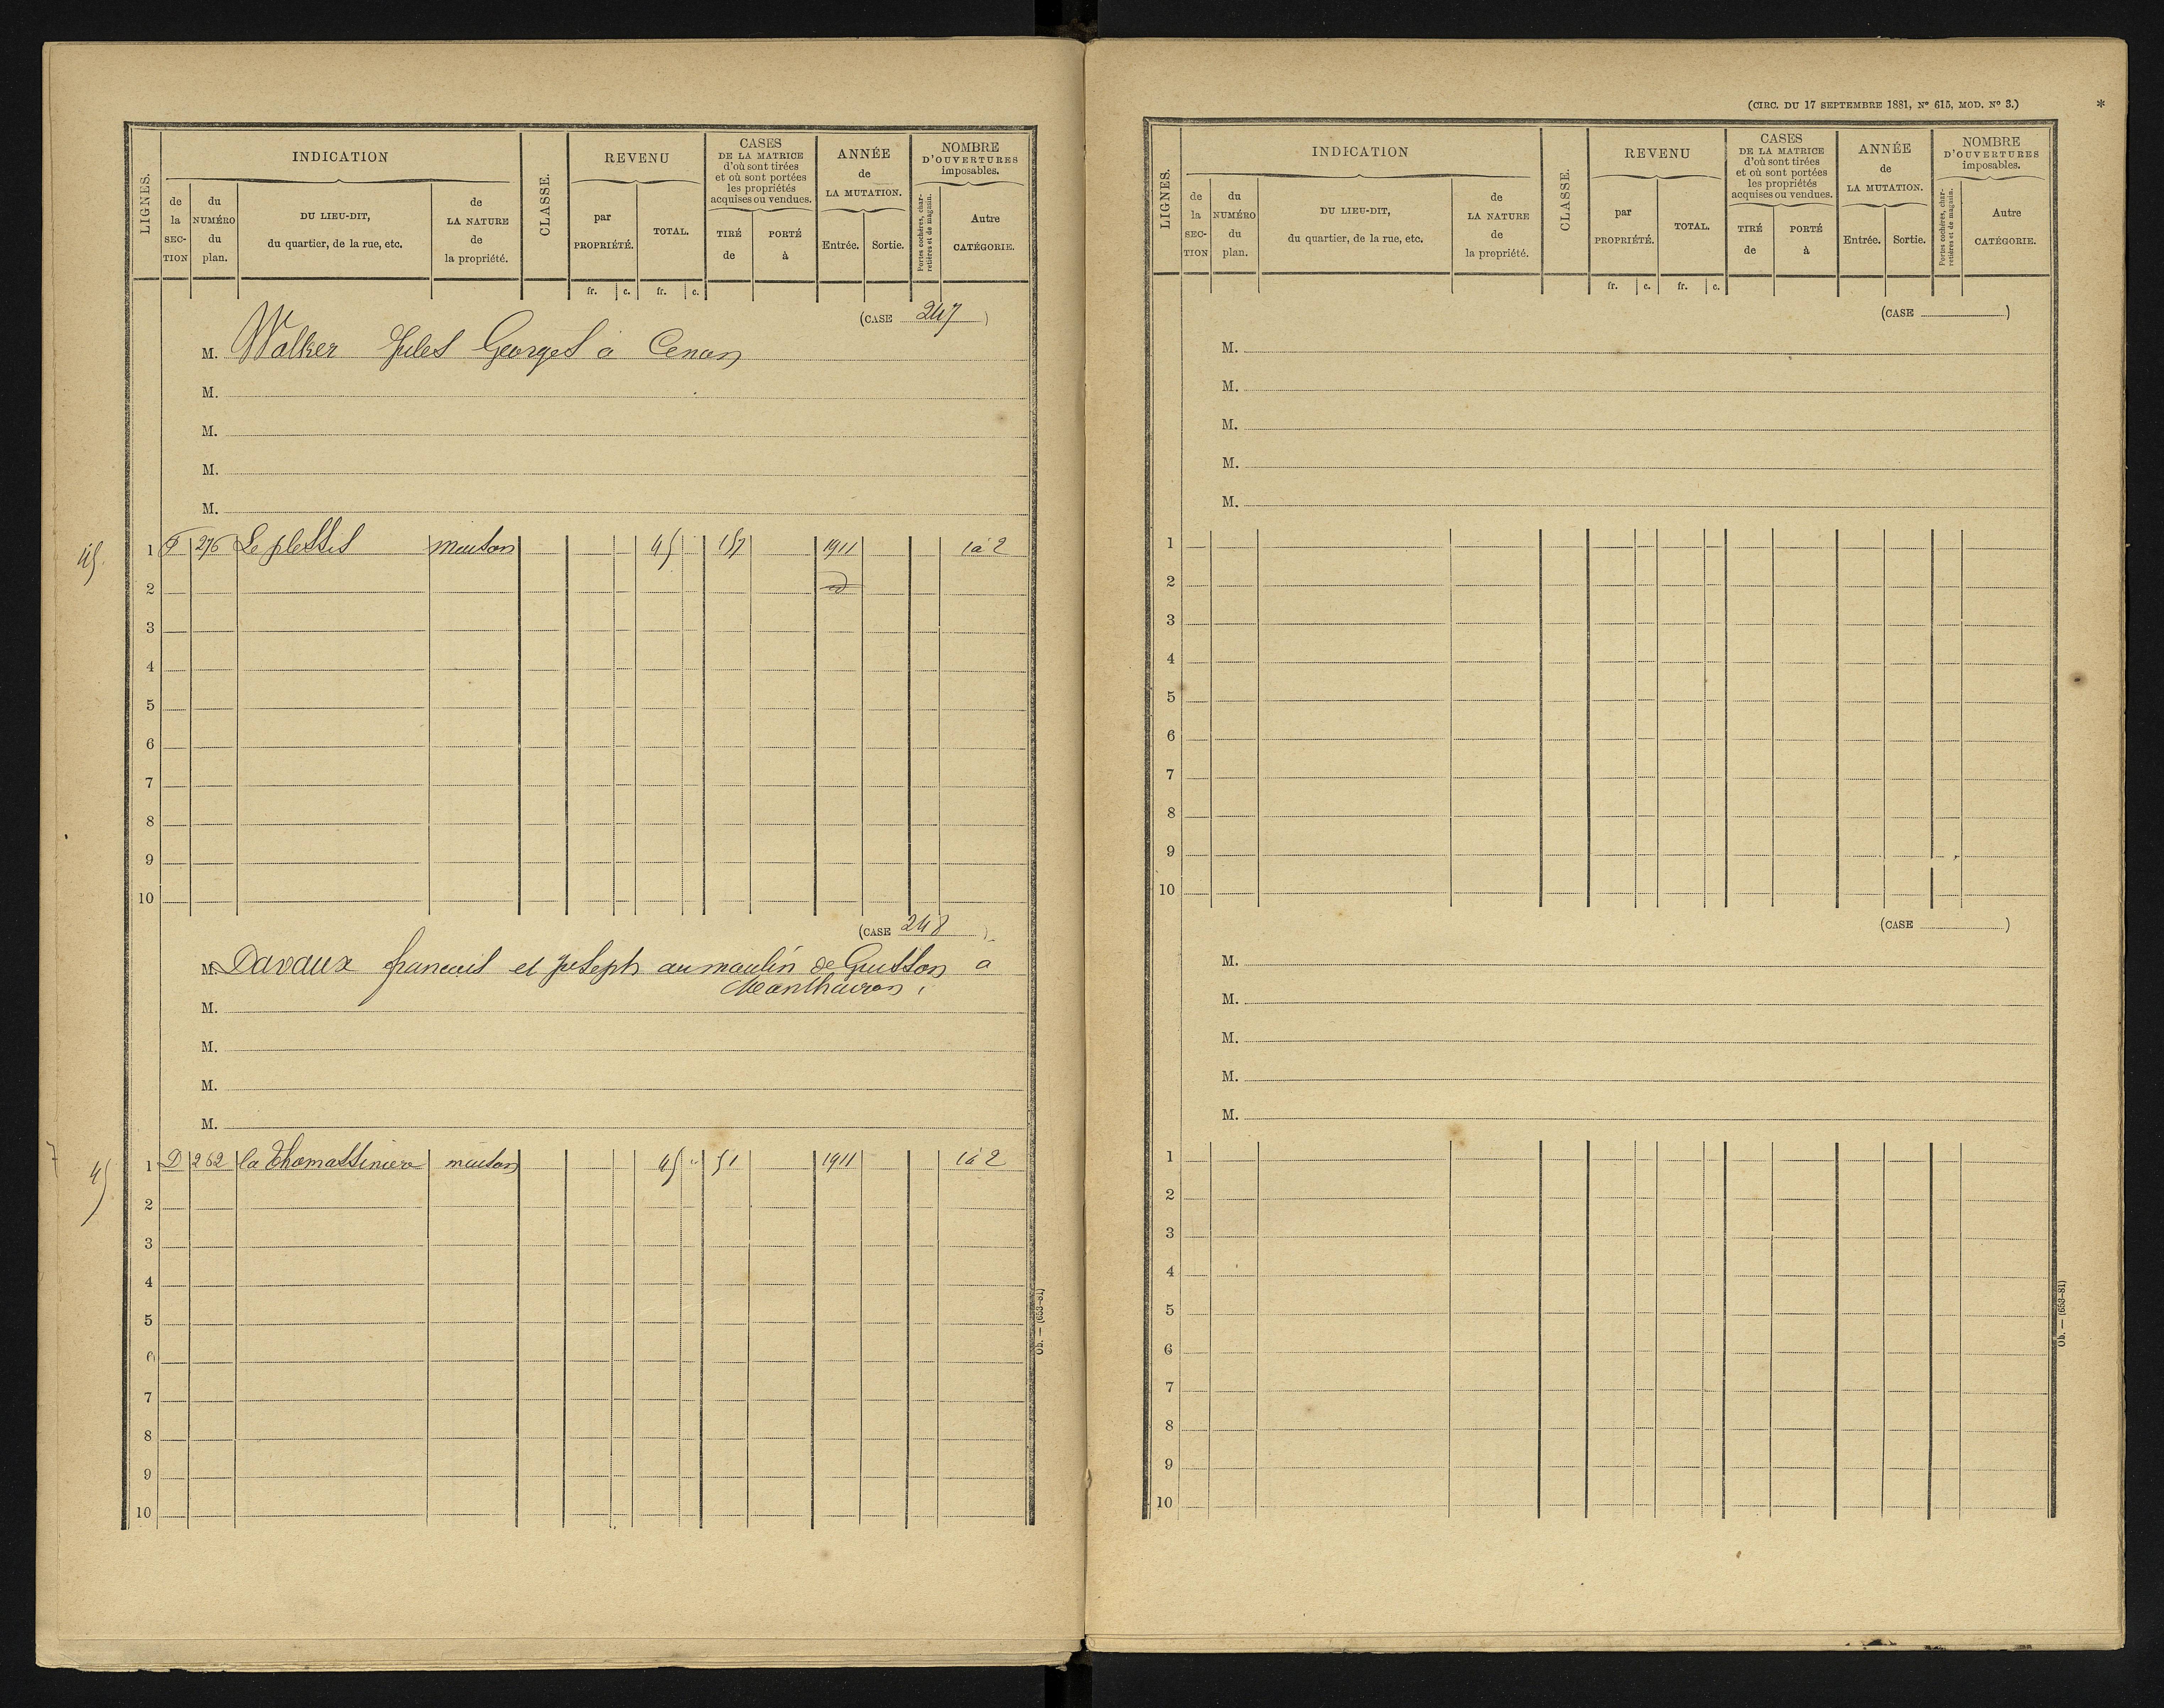 LIGNES.
INDICATION
de la SECTION
du NUMÉRO du plan.
DU LIEU-DIT, du quartier, de la rue, etc.
de LA NATURE de la propriété.
CLASSE.
REVENU
par PROPRIÉTÉ.
TOTAL.
CASES
DE LA MATRICE
d'où sont tirées
et où sont portées
les propriétés
acquises ou vendues.
TIRÉ de
PORTÉ à
ANNÉE
de
LA MUTATION.
Entrée.
Sortie.
NOMBRE
D'OUVERTURES
imposables.
Portes cochères, charretières et de magasin.
Autre CATÉGORIE.
fr. c. fr. c.
(CASE 247 )
M. Walker Jules Georges à Cenon
M.
M.
M.
M.
45
1 276 Le plessis maison 45 157 1911 1 à 2
2
3
4
5
6
7
8
9
10
(CASE 248 )
M. Davaux francois et Joseph au moulin de à
M.
M.
M.
M.
45
1 D 262 la Thomassiniere maison 45 " 51 1911 1 à 2
2
3
4
5
6
7
8
9
10
Ob. — (653-81)
(CIRC. DU 17 SEPTEMBRE 1881, Nº 615, MOD. Nº 3.) *
LIGNES.
INDICATION
de la SECTION
du NUMÉRO du plan.
DU LIEU-DIT, du quartier, de la rue, etc.
de LA NATURE de la propriété.
CLASSE.
REVENU
par PROPRIÉTÉ.
TOTAL.
CASES
DE LA MATRICE
d'où sont tirées
et où sont portées
les propriétés
acquises ou vendues.
TIRÉ de
PORTÉ à
ANNÉE
de
LA MUTATION.
Entrée.
Sortie.
NOMBRE
D'OUVERTURES
imposables.
Portes cochères, charretières et de magasin.
Autre CATÉGORIE.
fr. c. fr. c.
(CASE )
M.
M.
M.
M.
M.
1
2
3
4
5
6
7
8
9
10
(CASE )
M.
M.
M.
M.
M.
1
2
3
4
5
6
7
8
9
10
Ob. — (653-81)